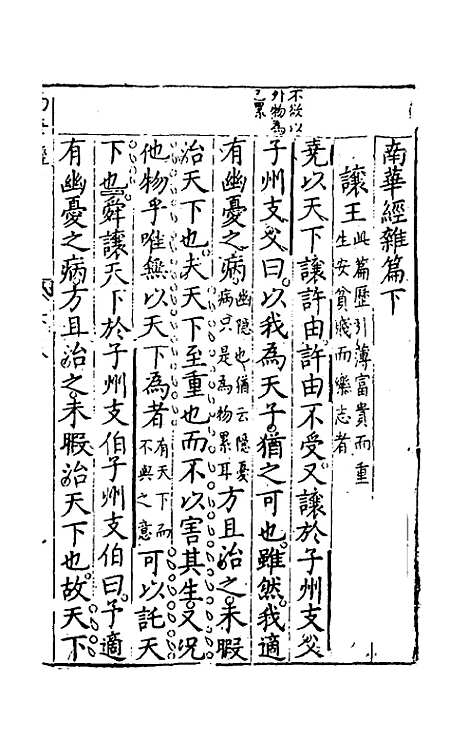 南華經雜篇下
讓王
此篇歷引薄富貴而重
生安貧賤而樂志者
堯以天下讓許由許由不受又讓於子州支父
子州支父曰以我為天子猶之可也雖然我適
不欲以
外物為
己累
有幽憂之病
幽隱也猶云隱憂
病只是為物累耳
方且治之未暇
治天下也夫天下至重也而不以害其生又况
他物乎唯無以天下為者
有天下而
不與之意
可以託天
下也舜讓天下於子州支伯子州支伯曰予適
有幽憂之病方且治之未暇治天下也故天下